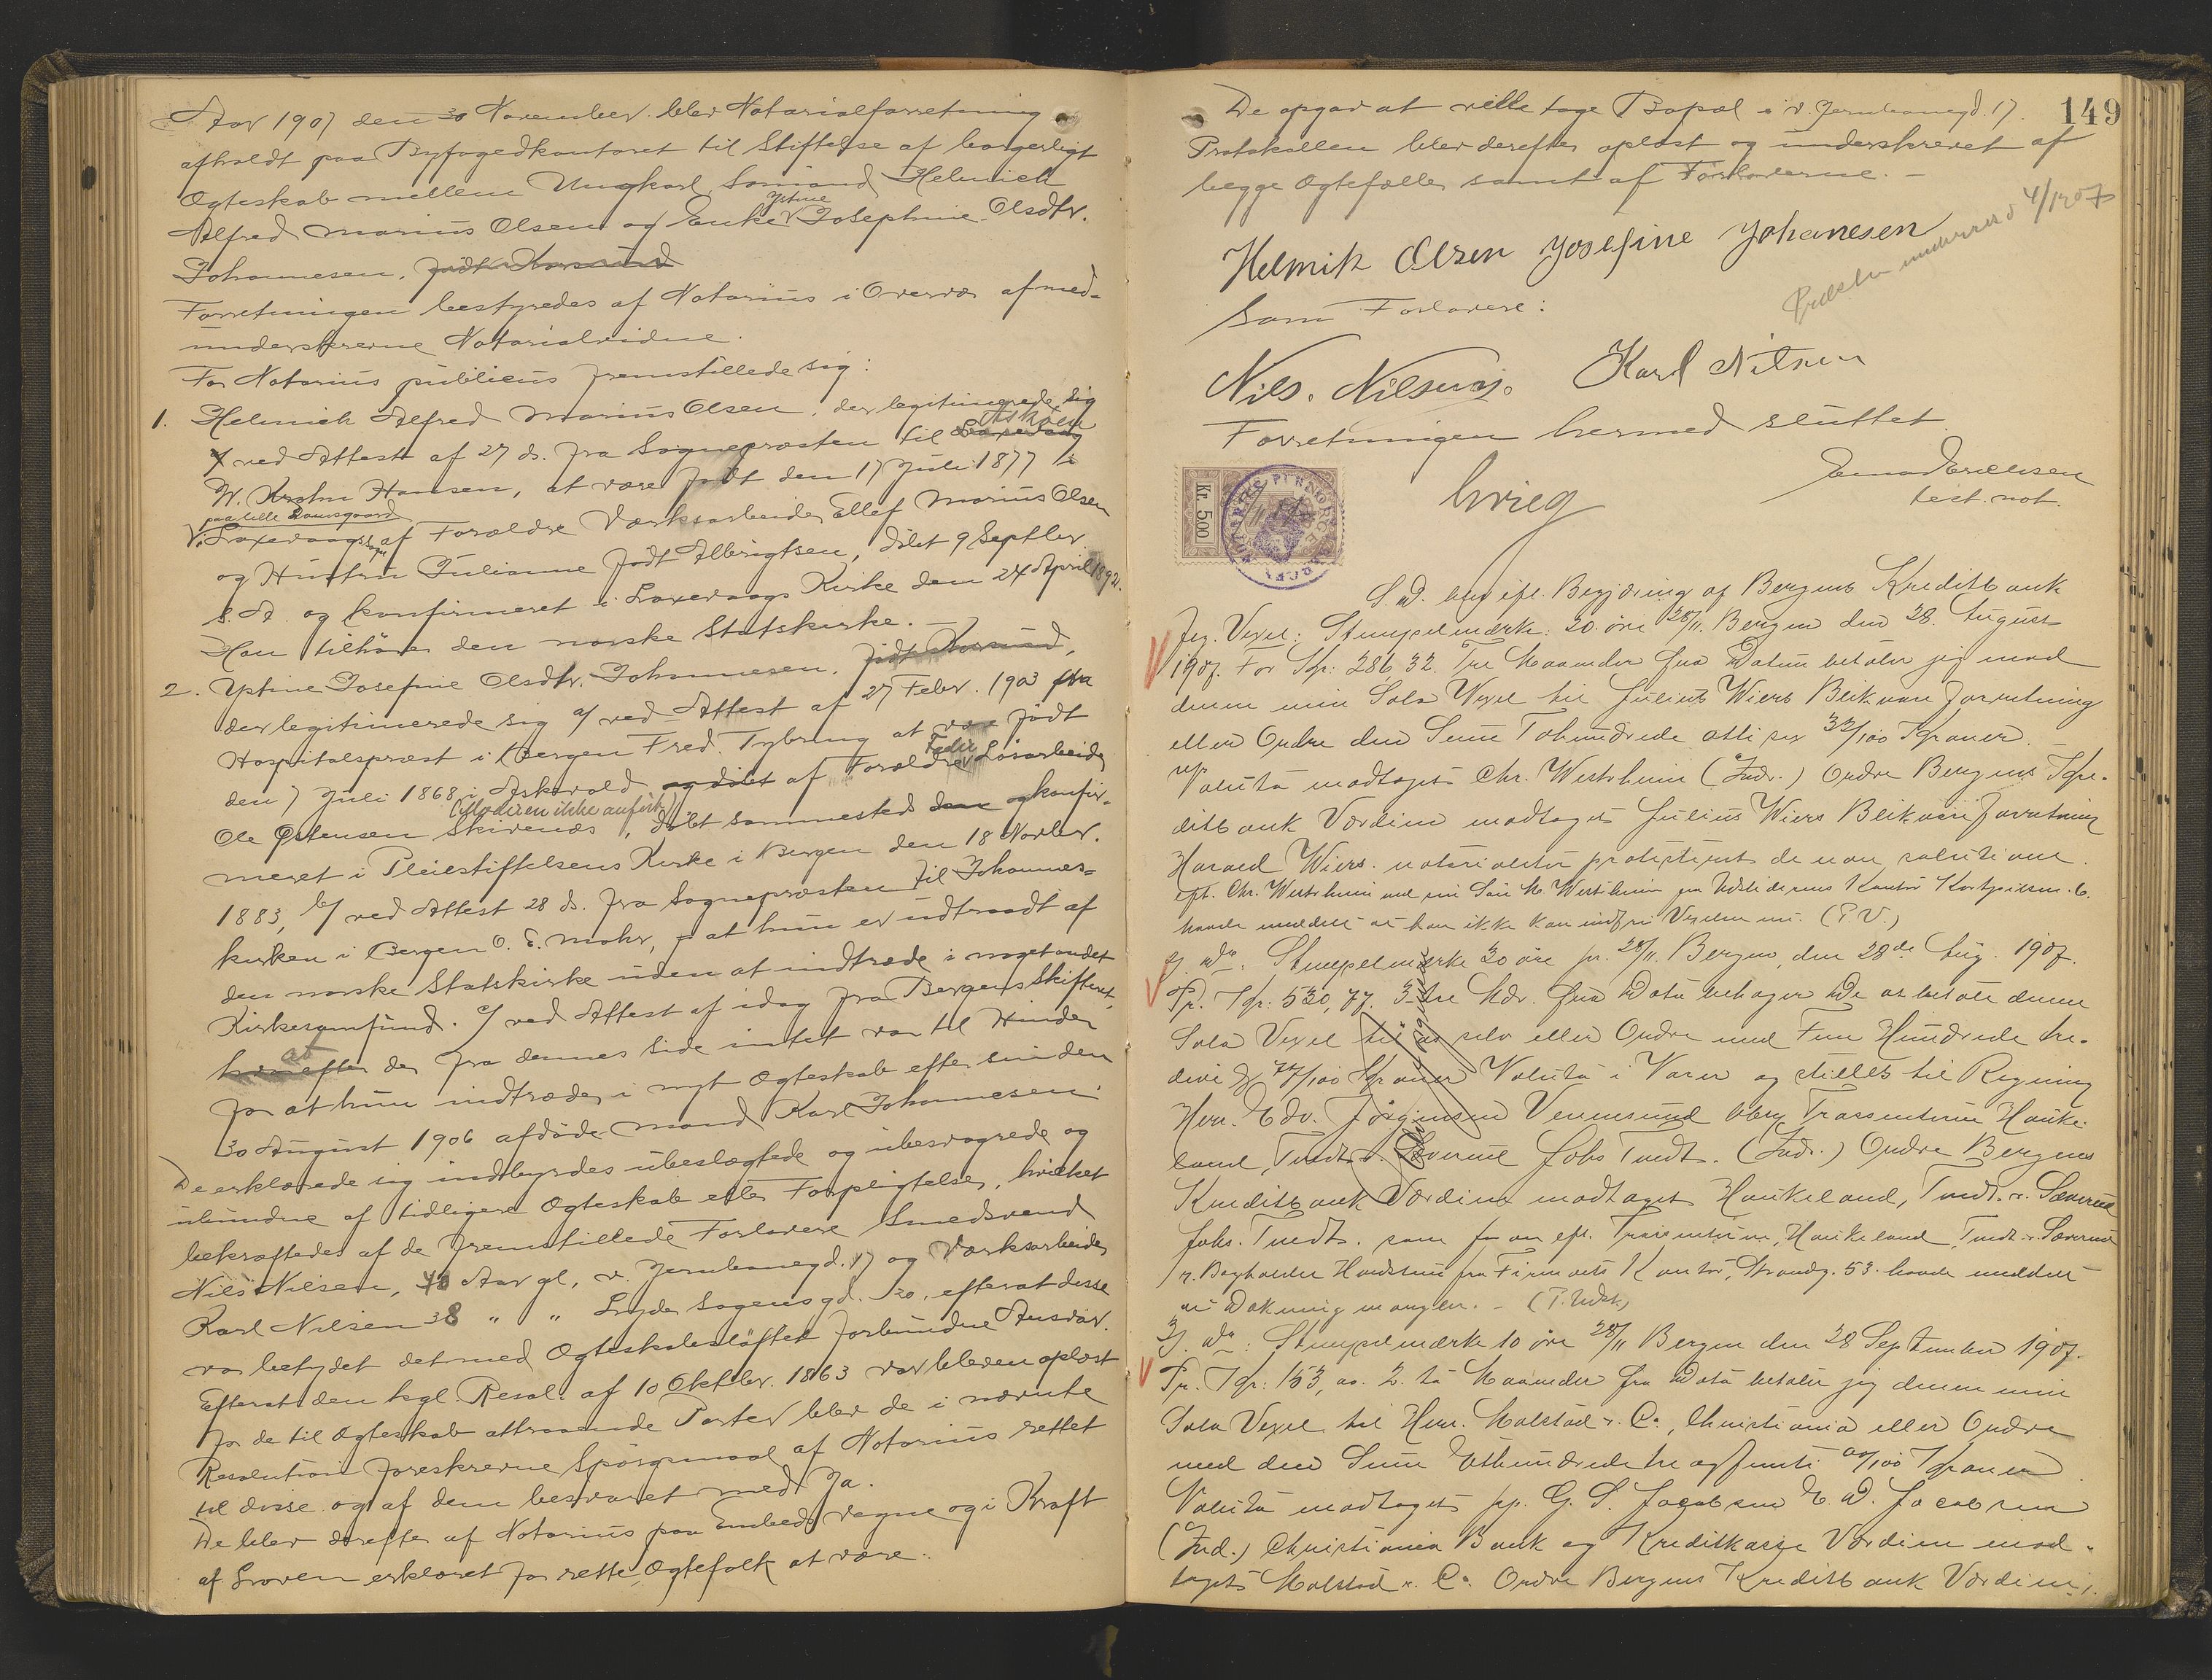 Aar 1907 den 30 November blev Notarialforretning
afholdt paa Byfogedkontoret til Stiftelse af borgerligt
Ægteskab mellem Ungkarl Sømand Helmich
Alfred Marius Olsen og Enke Ystine Josephine Olsdtr.
Johannesen, født
Forretningen bestyredes af Notarius i Overvær af med-
underskrevne Notarialvidne.
For Notarius publicus fremstillede sig:
1. Helmich Alfred Marius Olsen, der legitimerede sig
ved Attest af 27 ds. fra Sognepræsten til Askøen
W. Hansen, at være født den 17 Juli 1877 i
paa lille Damsgaard
i Laxevaags Sogn af Forældre Værksarbeider Ellef Marius Olsen
og Hustru Julianne født Albrigtsen, døbt 9 Septbr
s. A. og konfirmeret i Laxevaags Kirke den 24 April 1892.
Han tilhører den norske Statskirke. –
2. Ystine Josefine Olsdtr. Johannesen, født
der legitimerede sig a/ ved Attest af 27 Febr. 1903 fra
Hospitalspræst i Bergen Fred. Tybring at være født
den 7 Juli 1868 i Askvold og døbt af Forældre Fader Løsarbeider
(Moderen ikke anført)
Ole Østensen Skivenes, døbt sammesteds og konfir-
meret i Pleiestiftelsens Kirke i Bergen den 18 Novbr.
1883, b/ ved Attest 28 ds. fra Sognepræsten til Johannes-
kirken i Bergen O. E. Mohr, at hun er udtraadt af
den norske Statskirke uden at indtræde i noget andet
Kirkesamfund. c/ ved Attest af idag fra Bergens Skifteret
hvorefter at der fra dennes Side intet var til Hinder
for at hun indtræder i nyt Ægteskab efter sin den
30 August 1906 afdøde Mand Karl Johannesen.
De erklærede sig indbyrdes ubeslægtede og ubesvogrede og
ubundne af tidligere Ægteskab eller Forpligtelser, hvilket
bekræftedes af de fremstillede Forlovere Smedsvend
Nils Nilsen, 40 Aar gl., v. Jernbanegd. 17 og Værksarbeider
Karl Nilsen 38 " " Lyder Sagens gd. 20, efterat disse
var betydet det med Ægteskabsløftet forbundne Ansvar.
Efterat den kgl. Resol. af 10 Oktbr. 1863 var bleven oplæst
for de til Ægteskab attraaende Parter blev de i nævnte
Resolution foreskrevne Spørgsmaal af Notarius rettet
til disse og af dem besvaret med Ja.
De blev derefter af Notarius paa Embeds vegne og i Kraft
af Loven erklæret for rette Ægtefolk at være.
149
De opgav at ville tage Bopæl i v. Jernbanegd. 17.
Protokollen blev derefter oplæst og underskrevet af
begge Ægtefæller samt af Forloverne. –
Præsten underret d 4/12 07
Helmik Olsen Josefine Johanesen
Som Forlovere:
Nils. Nilsen. Karl Nilsen
Forretningen hermed sluttet.
Kr. 5,00
test. not.
S. D. blev efter Begjæring af Bergens Kreditbank
Jeg. Vexel: Stempelmærke: 20 øre 28/11. Bergen den 28. August
1907. For Kr: 286 32. Tre Maaneder fra Datum betaler jeg mod
denne min Sola Vexel til Julius Wiers Blikvare Forretning
eller Ordre den Sum Tohundrede otti sex 32/100 Kroner. –
Valuta modtaget. Chr. Westrheim (Indr.) Ordre Bergens Kre-
ditbank Værdien modtaget Julius Wiers Blikvareforretning
Harald Wiers. notarialiter protesteret de non solutione
eft. Chr. Westrheim ved sin Søn M Westrheim fra Udstederens Kontor 6.
havde meddelt at han ikke kan indfri Vexelen nu. (P. V.)
2/ Do. Stempelmærke 30 øre pr. 28/11. Bergen, den 28de Aug. 1907.
Pr. Kr: 530,77. 3 tre Mdr. fra Dato behager De at betale denne
Sola Vexel til os selv eller Ordre med Fem Hundrede tre-
dive & 77/100 Kroner Valuta i Varer og stilles til Regning
Herr. Edv. Jørgensen Vennesund Trassenterne Hauke-
land, Tvedt & Sæverud Johs Tvedt. (Indr.) Ordre Bergens
Kreditbank Værdien modtaget Haukeland, Tvedt & Sæverud
Johs. Tvedt. som for eft. Trassenterne, Haukeland, Tvedt & Sæverud
v. Bogholder fra Firmaets Kontor, Strandg. 53. havde meddelt
at Dækning mangler. – (P. Udst.)
3/ Do: Stempelmærke 10 øre 28/11 Bergen den 28 September 1907.
Pr. Kr: 153,00. 2. to Maaneder fra Dato betaler jeg denne min
Sola Vexel til Herr. Malstad & Co., Christiania eller Ordre
med den Sum Ethundrede tre og femti 00/100 Kroner
Valuta modtaget pp. G. S. Jacobsen E. D. Jacobsen
(Ind.) Christiania Bank og Kreditkasse Værdien mod-
taget Malstad & Co. Ordre Bergens Kreditbank Værdien